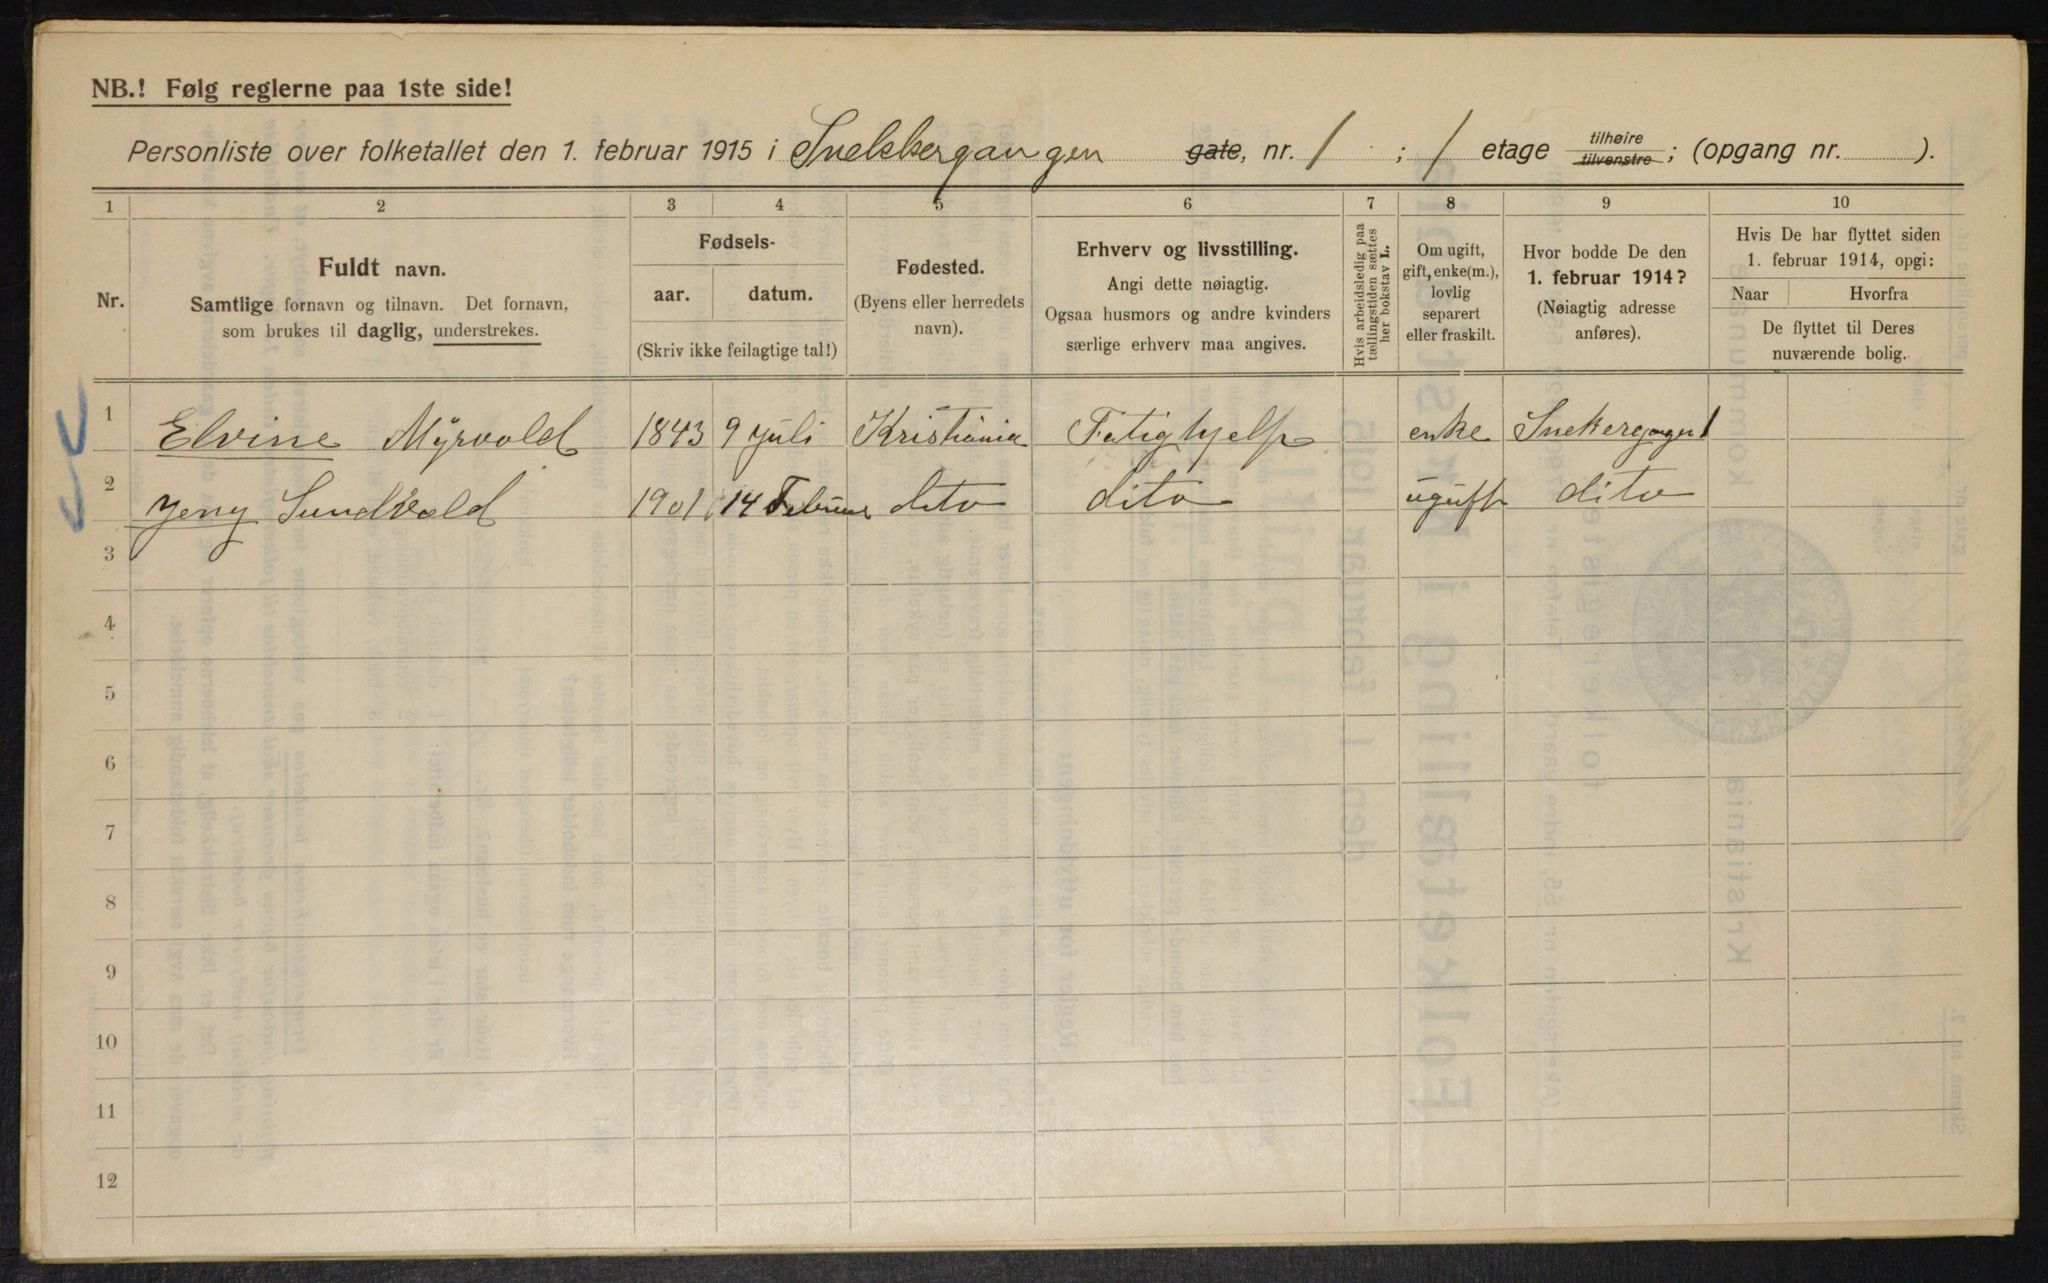 NB.! Følg reglerne paa 1ste side!
Personliste over folketallet den 1. februar 1915 i Snekkergangen gate, nr. 1 ; 1 etage tilhøire tilvenstre ; (opgang nr. ).
1 2 3 4 5 6 7 8 9 10
Nr.
Fuldt navn.
Samtlige fornavn og tilnavn. Det fornavn,
som brukes til daglig, understrekes.
Fødsels-
aar. datum.
(Skriv ikke feilagtige tal!)
Fødested.
(Byens eller herredets
navn).
Erhverv og livsstilling.
Angi dette nøiagtig.
Ogsaa husmors og andre kvinders
særlige erhverv maa angives.
Hvis arbeidsledig paa
tællingstiden sættes
her bokstav L.
Om ugift,
gift, enke(m.),
lovlig
separert
eller fraskilt.
Hvor bodde De den
1. februar 1914?
(Nøiagtig adresse
anføres).
Hvis De har flyttet siden
1. februar 1914, opgi:
Naar Hvorfra
De flyttet til Deres
nuværende bolig.
1 Elvine Myrvold 1843 9 juli Kristiania Fatighjelp enke Snekergangen 1
2 Jeny Sundvold 1901 14 Februar dito dito ugift dito
3
4
5
6
7
8
9
10
11
12